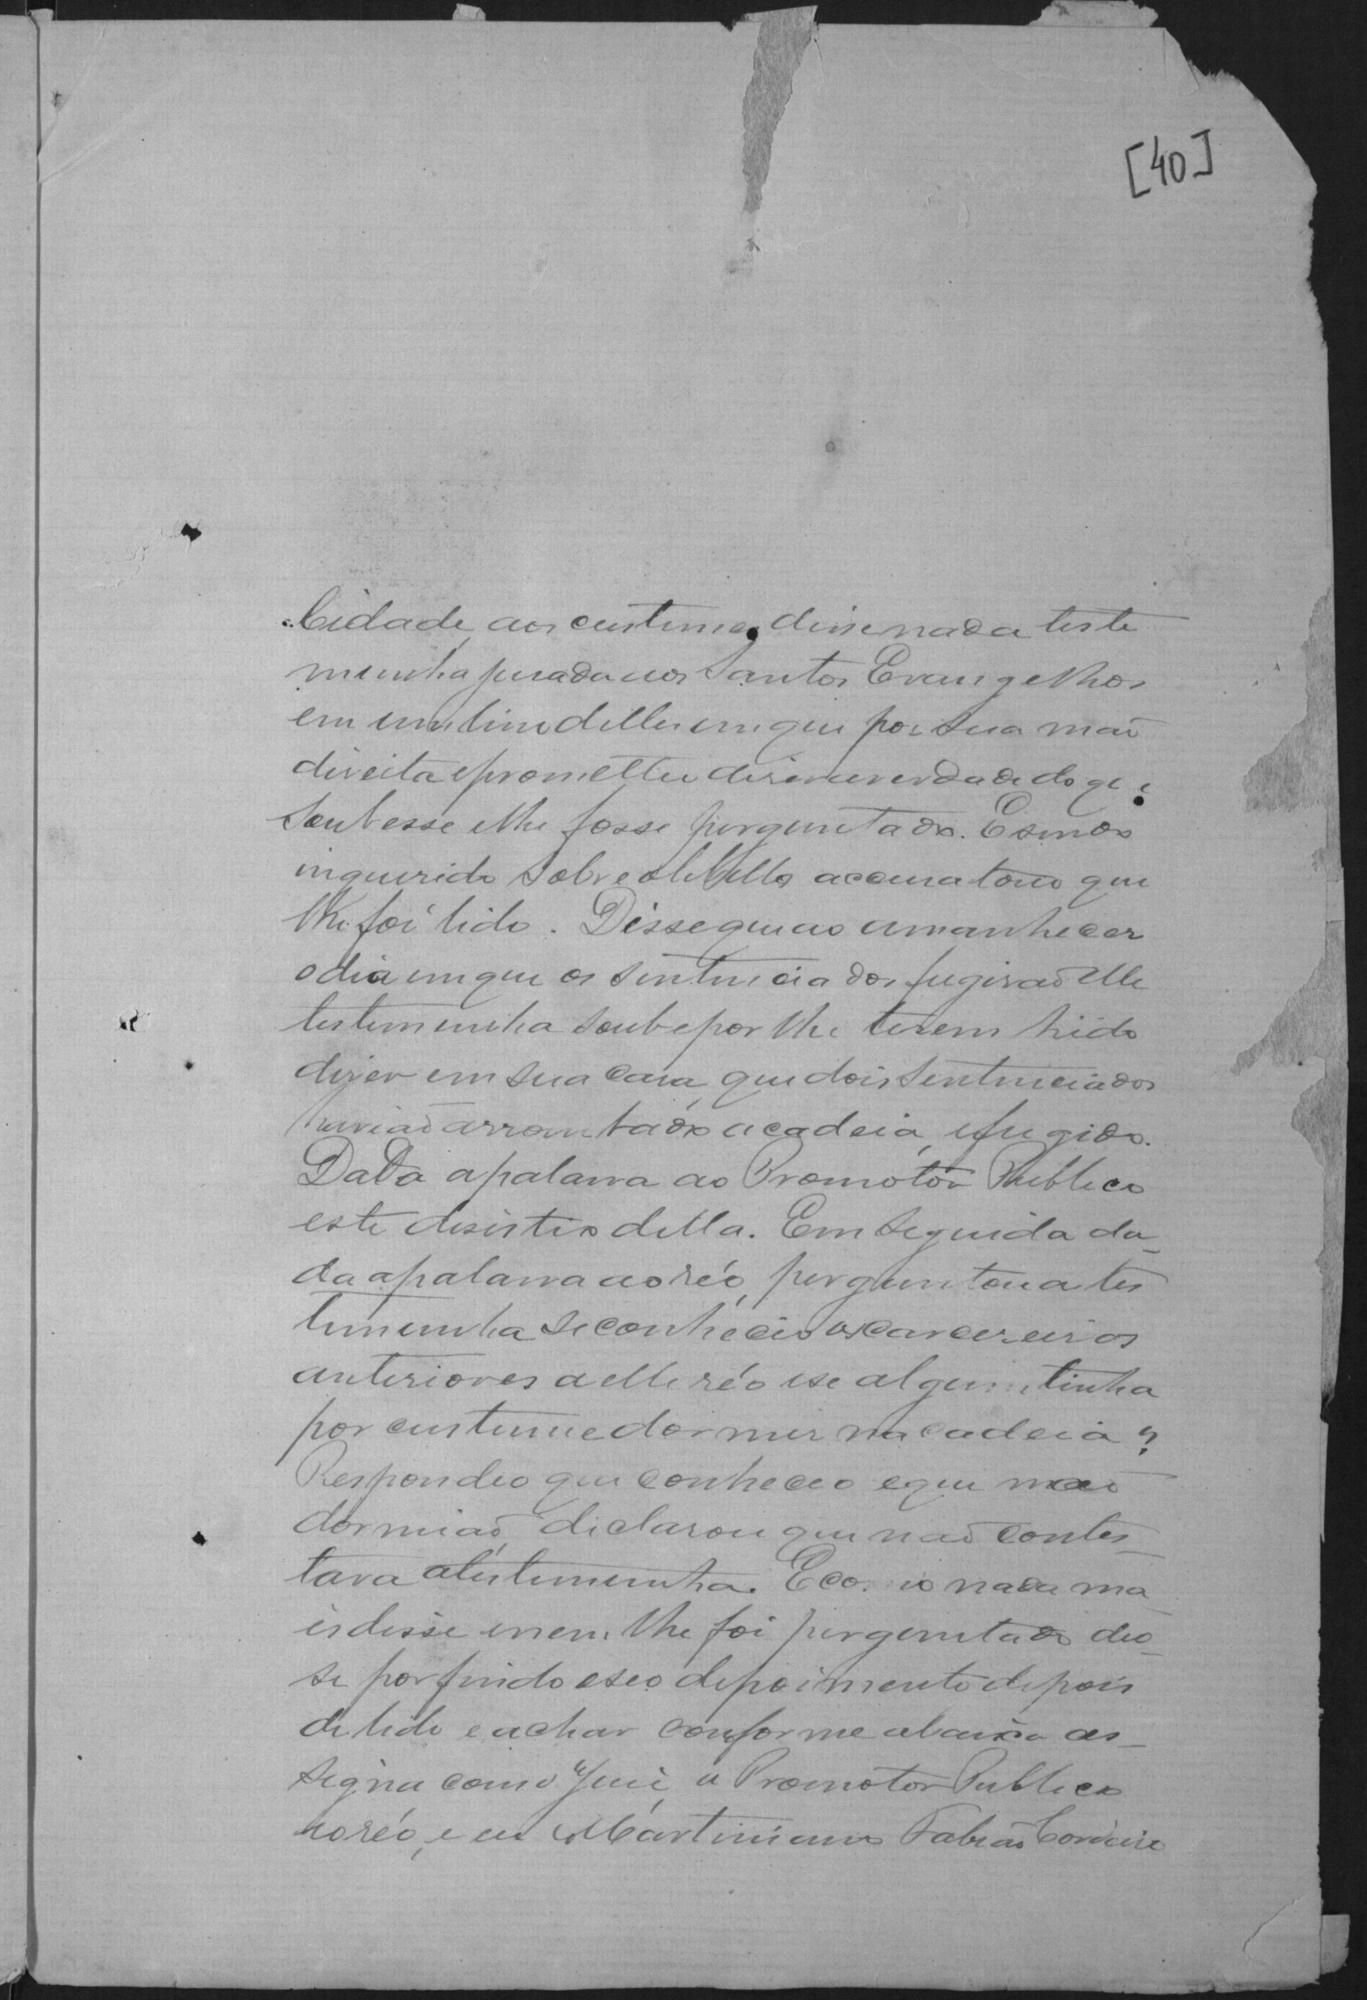 [40]
Cidade, aos custumes disse nada teste
munha jurada aos Santos Evangelhos
em um livro delles em que pos sua mão
direita e prometteu diser a verdade do que
soubesse e lhe fosse perguntado. E sendo
inquerido sobre o libello acusatorio que
lhe foi lido. Disse que ao amanhecer
o dia em que os sentenciados fugirão elle
testemunha soube por lhe terem hido
diser em sua casa, que dois sentenciados
havião arrombado a cadeia, e fugido.
Dada a palavra ao Promotor Publico
este desistio della. Em seguida da-
da a palavra ao réo, perguntou a tes
temunha se conheceo os carcereiros
anteriores a elle réo e se algum tinha
por custume dormir na cadeia?
Respondeo que conheceo e que não
dormião, declarou que não contes-
tava a testemunha. E como nada ma
is disse e nem lhe foi perguntado deo-
se por findo e seo depoimento depois
de lido e achar conforme abaixo as-
signa com o Juiz, o Promotor Publico
no réo, e eu Martiniano Fabião Cordeiro